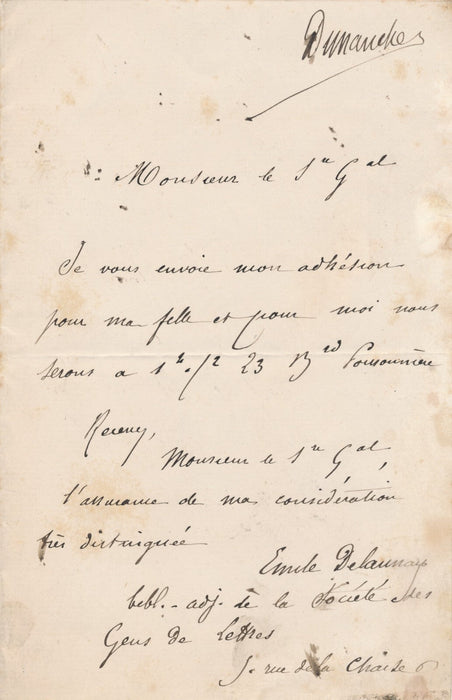 Dimanche
Monsieur le Sre Gal
Je vous envoie mon adhésion
pour ma fille et pour moi nous
serons a 1h. 1/2 23 Bd Poissonnière
Recevez,
Monsieur le Sre Gal,
l'assurance de ma considération
très distinguée
Emile Delaunay
bibl.-adj. de la Société des
Gens de lettres
5. rue de la Chaise